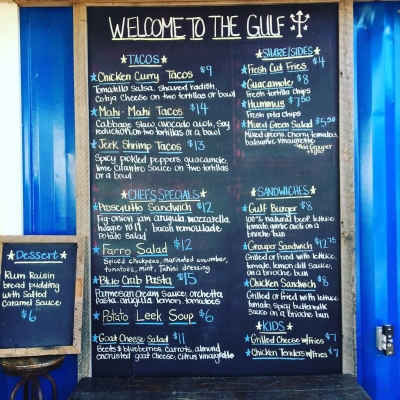 WELCOME TO THE GULF
TACOS
Chicken Curry Tacos $9
Tomatillo Salsa, Shaved radish,
Cotija Cheese on two tortillas or bowl
Mahi-Mahi Tacos $14
Cabbage Slaw avocado aioli, Soy
reduction on two tortillas or a bowl
Jerk Shrimp Tacos $13
Spicy pickled peppers guacamole,
lime Cilantro Sauce on two tortillas
or a bowl
SHARE/SIDES
Fresh Cut Fries $4
Guacamole $8
Fresh tortilla chips
Hummus $7.50
Fresh pita chips
Mixed Green Salad $5.50
Mixed greens, Cherry tomatoes
balsamic Vinaigrette
*Add Grouper
CHEF'S SPECIALS
Prosciutto Sandwich $12
Fig-onion jam arugula, mozzarella,
hoagie roll, bacon remoulade
Potato Salad
Farro Salad $12
Spiced chickpeas, marinated cucumber,
tomatoes, mint, Tahini dressing
Blue Crab Pasta $15
Parmesan Cream Sauce, orchetta
Pasta arugula lemon, tomatoes
Potato Leek Soup $6
Goat Cheese Salad $11
Beets & blueberries Carrots, almond
encrusted goat cheese, citrus vinaigrette
SANDWICHES
Gulf Burger $8
100% natural beef, lettuce
tomato, garlic aioli on a
brioche bun
Grouper Sandwich $12.75
Grilled or fried with lettuce,
tomato, lemon dill sauce,
on a brioche bun
Chicken Sandwich $8
Grilled or fried with lettuce,
tomato, spicy buttermilk
Sauce on a brioche bun
KIDS
Grilled Cheese w/fries $7
Chicken Tenders w/fries $7
Dessert
Rum Raisin
bread pudding
with Salted
Caramel Sauce
$6